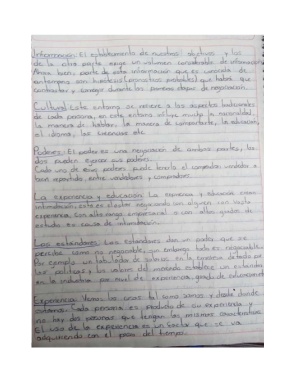 Información: El establecimiento de nuestros objetivos y los
de la otra parte exige un volumen considerable de información
Ahora buena parte de esta información que es conocida de
antemano son hipótesis (propósitos probables) que habrá que
contrastar y conseguir durante las primeras etapas de negociación.
Cultural: Este entorno se refiere a los aspectos tradicionales
de cada persona, en este entorno influye mucho la nacionalidad,
la manera de hablar, la manera de comportarte, la educación,
el idioma, las creencias etc
Poderes: El poder es una negociación de ambas partes, las
dos pueden ejercer sus poderes.
Cada uno de esos poderes puede tenerlo el comprador vendedor o
bien repartido entre vendedores y compradores
La experiencia y educación: La experiencia y educación
intimidación, este es el
experiencia, con alto rango empresarial o con altos grados de
estudio es causa de intimidación.
Los estándares: Los estándares dan un poder que se
percibe como no negociable, sin embargo todo es negociable.
Por ejemplo un tabulador de salarios. En la empresa debido por
las políticas y los valores del mercado establece un estándar
en la industria por nivel de experiencia, grado de conocimiento
Experiencia: Vemos las cosas tal como somos y desde donde
estamos. Cada persona es producto de su experiencia y
no hay dos personas que tengan las mismas características
El uso de la experiencia es un factor que se va
adquiriendo con el paso del tiempo.